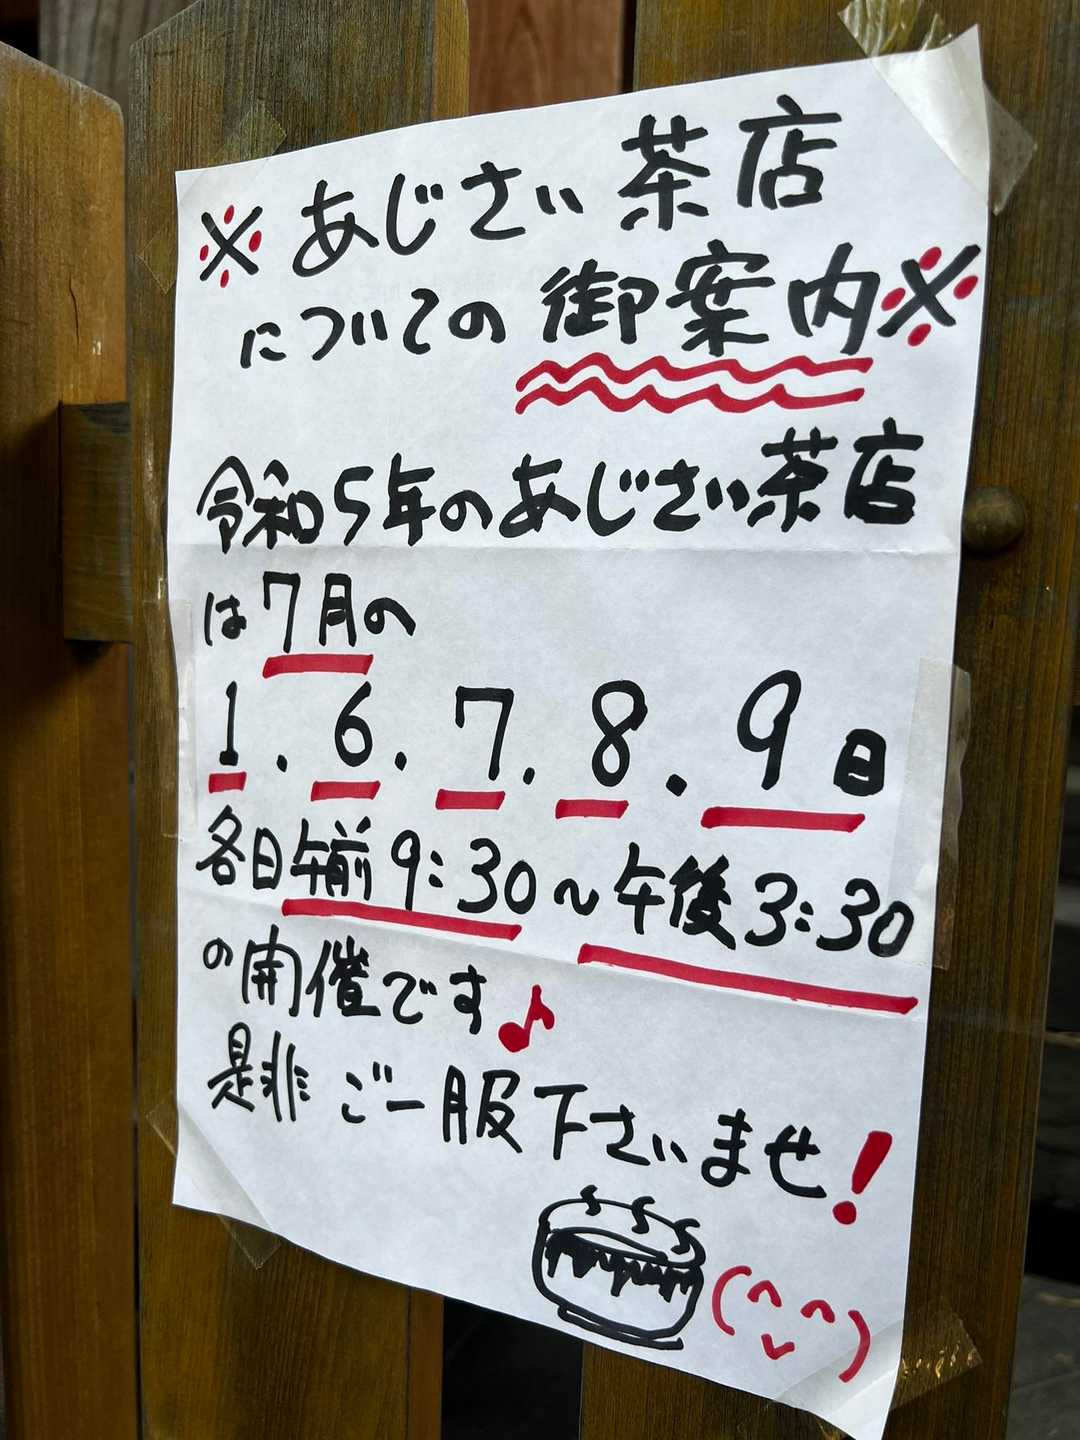 ※あじさい茶店
についての御案内※
令和5年のあじさい茶店
は7月の
1.6.7.8.9日
各日午前9:30～午後3:30
の開催です♪
是非ご一服下さいませ!
(^ ^)